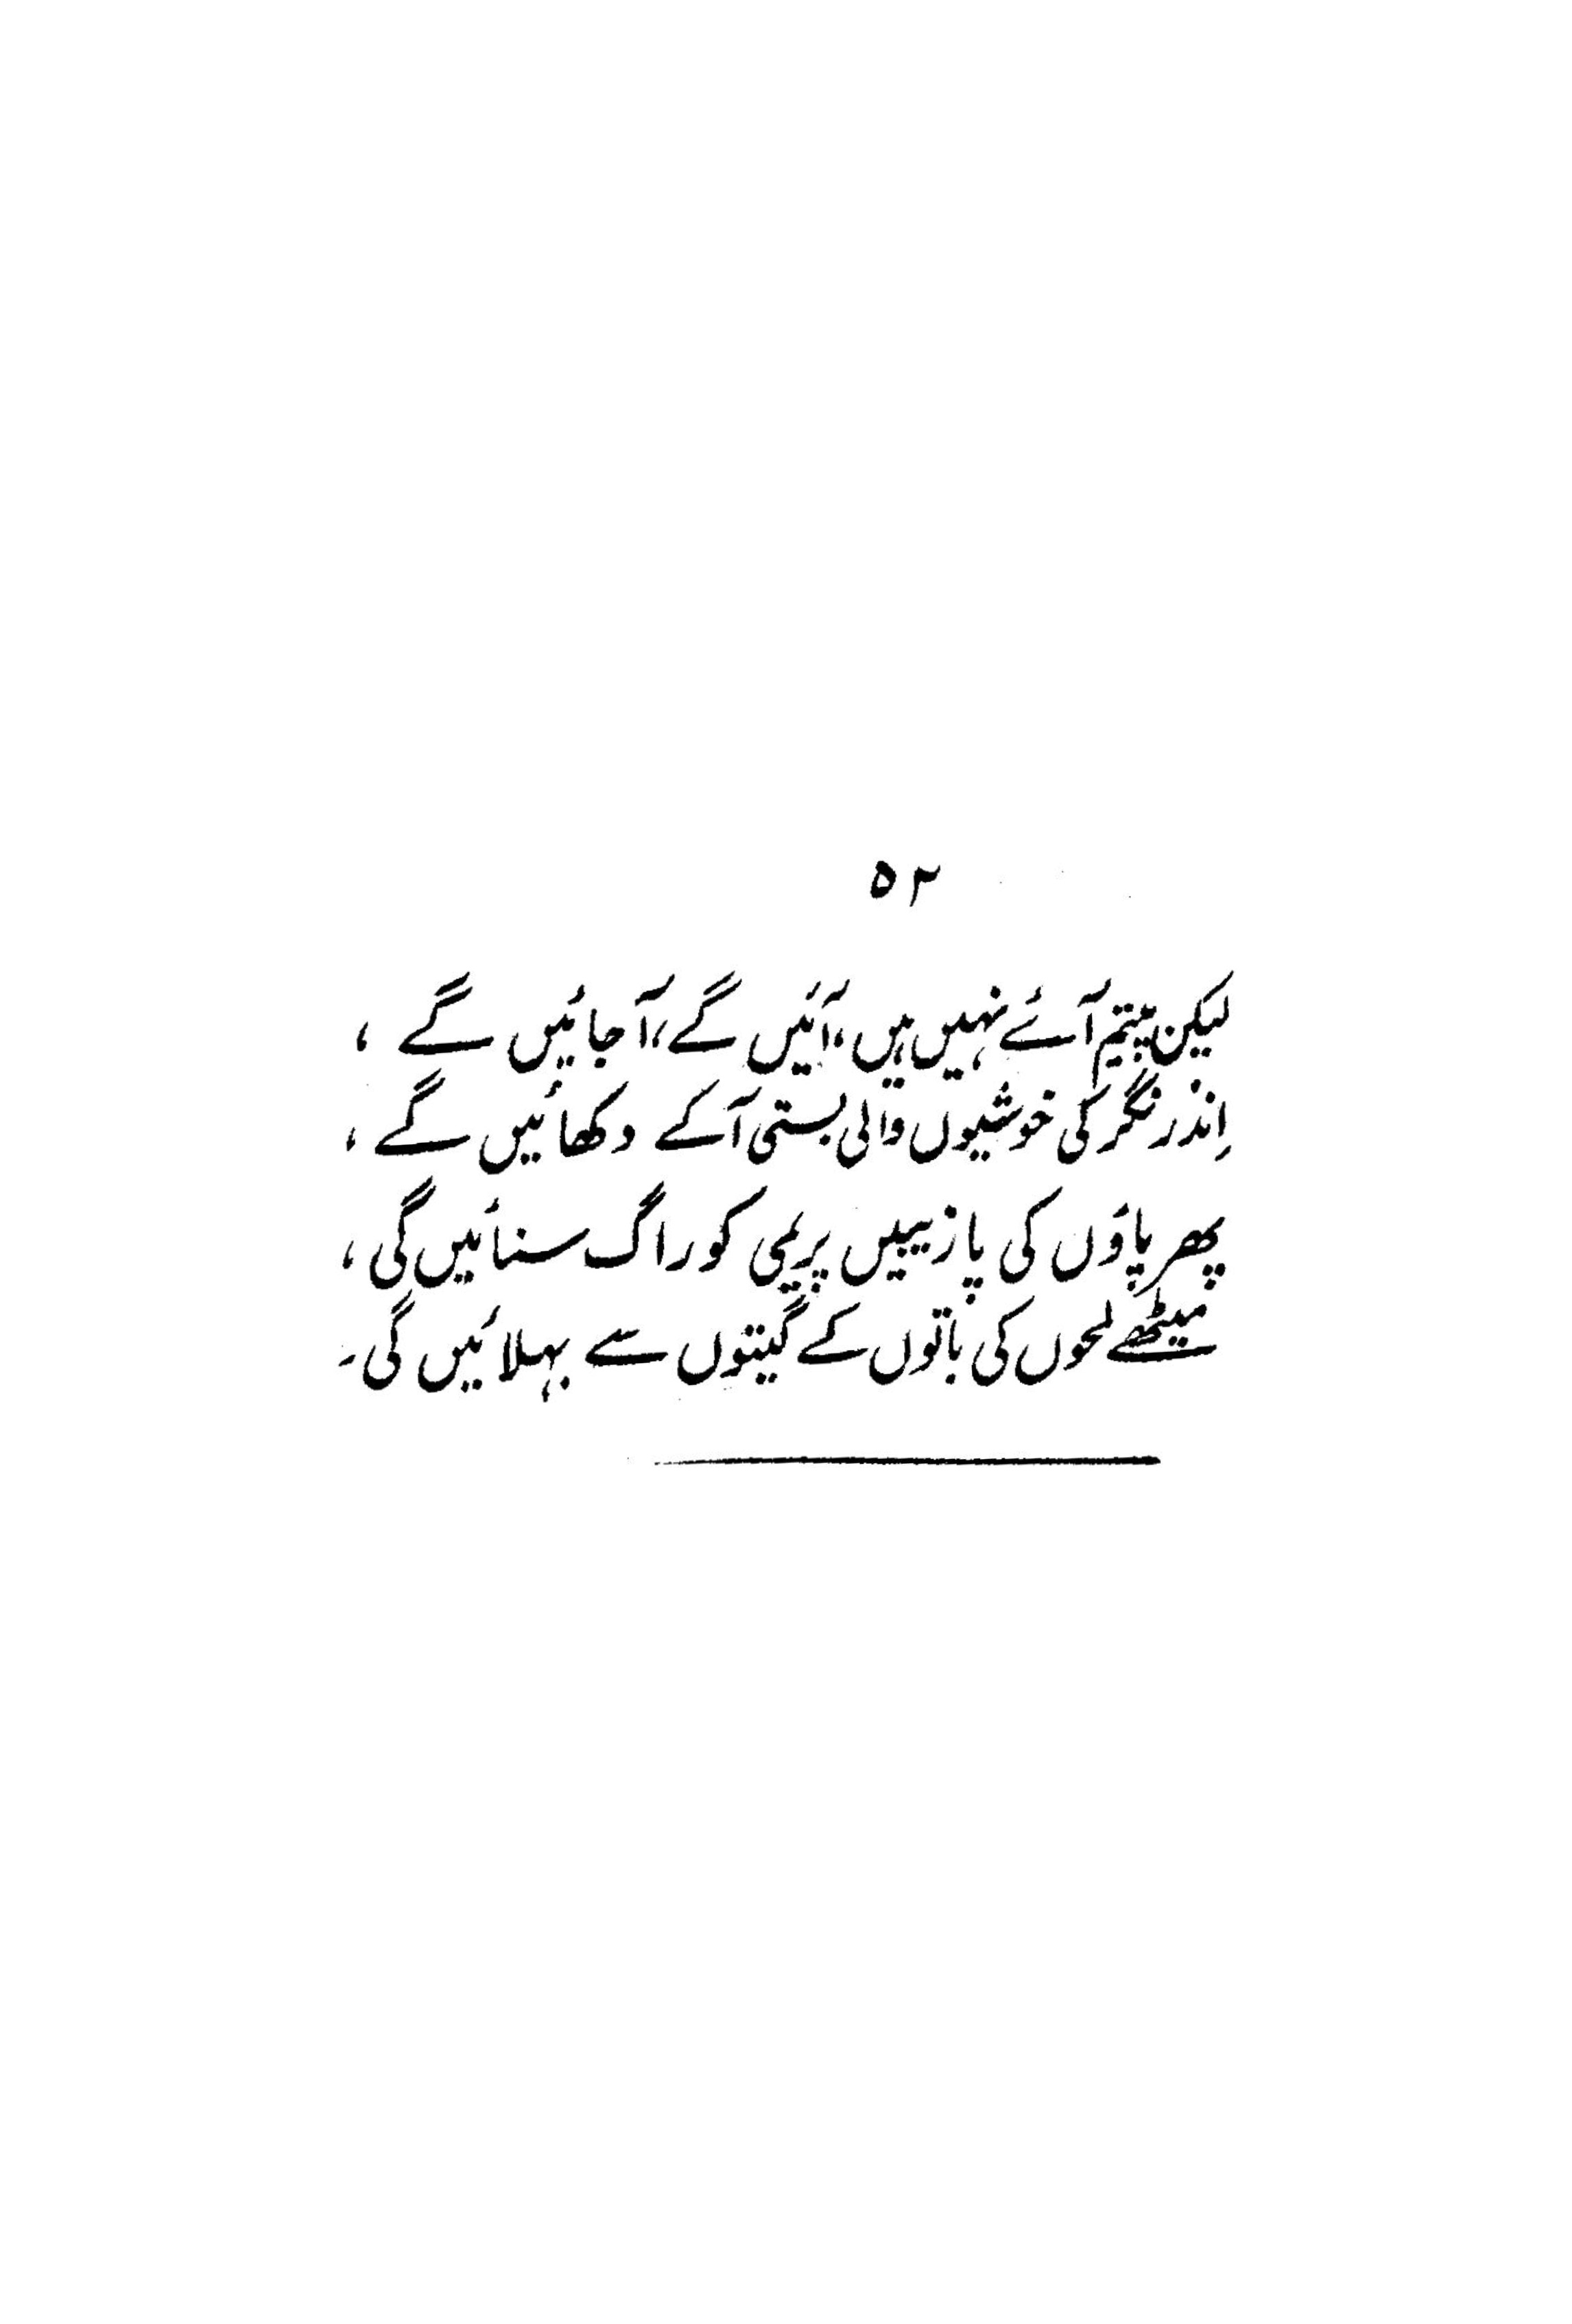 ۵۲
لیکن پیتم آئے نہیں ہیں، آئیں گے، آجائیں گے ،
اِندر نگر کی خوشیوں والی بستی آکے دکھائیں گے ،
پھر پاؤں کی پازیبیں پریمی کو راگ سنائیں گی ،
میٹھے لمحوں کی باتوں کے گیتوں سے بہلائیں گی۔